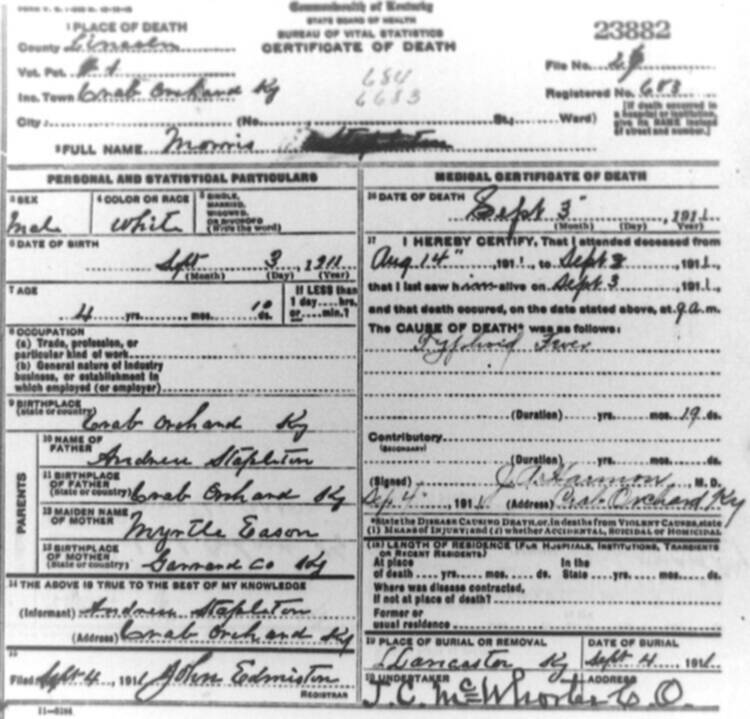 Commonwealth of Kentucky
STATE BOARD OF HEALTH
BUREAU OF VITAL STATISTICS
CERTIFICATE OF DEATH
23882
1 PLACE OF DEATH
County Lincoln
Vot. Pct. # 1
Inc. Town Crab Orchard Ky
City: (No. St.; Ward)
684
6683
File No. 29
Registered No. 683
[If death occurred in
a hospital or institution,
give its NAME instead
of street and number.]
2 FULL NAME Morris Stapleton
PERSONAL AND STATISTICAL PARTICULARS
3 SEX
Male
4 COLOR OR RACE
White
5 SINGLE,
MARRIED,
WIDOWED,
OR DIVORCED
(Write the word)
6 DATE OF BIRTH
Sept 3 1911
(Month) (Day) (Year)
7 AGE
4 yrs. mos. 10 ds.
If LESS than
1 day....hrs.
or....min.?
8 OCCUPATION
(a) Trade, profession, or
particular kind of work
(b) General nature of industry
business, or establishment in
which employed (or employer)
9 BIRTHPLACE
(state or country) Crab Orchard Ky
PARENTS
10 NAME OF
FATHER Andrew Stapleton
11 BIRTHPLACE
OF FATHER
(State or country) Crab Orchard Ky
12 MAIDEN NAME
OF MOTHER Myrtle Eason
13 BIRTHPLACE
OF MOTHER
(State or country) Garrard Co Ky
14 THE ABOVE IS TRUE TO THE BEST OF MY KNOWLEDGE
(Informant) Andrew Stapleton
(Address) Crab Orchard Ky
15
Filed Sept 4, 1911 John Edmiston
REGISTRAR
11-3184
MEDICAL CERTIFICATE OF DEATH
16 DATE OF DEATH
Sept 3, 1911
(Month) (Day) (Year)
17 I HEREBY CERTIFY, That I attended deceased from
Aug 14", 1911, to Sept 3, 1911,
that I last saw him alive on Sept 3, 1911,
and that death occured, on the date stated above, at 9 a.m.
The CAUSE OF DEATH* was as follows:
Typhoid Fever
(Duration) yrs. mos. 19 ds.
Contributory
(SECONDARY)
(Duration) yrs. mos. ds.
(Signed) J. A. Harmon, M. D.
Sep. 4", 1911 (Address) Crab Orchard Ky
*State the DISEASE CAUSING DEATH, or, in deaths from VIOLENT CAUSES, state
(1) MEANS OF INJURY; and (2) whether ACCIDENTAL, SUICIDAL or HOMICIDAL
(18) LENGTH OF RESIDENCE (FOR HOSPITALS, INSTITUTIONS, TRANSIENTS
OR RECENT RESIDENTS)
At place
of death yrs. mos. ds.
In the
State yrs. mos. ds.
Where was disease contracted,
if not at place of death?
Former or
usual residence
19 PLACE OF BURIAL OR REMOVAL
Lancaster Ky
DATE OF BURIAL
Sept 4 1911
20 UNDERTAKER
ADDRESS
J. C. McWhorter C. O.